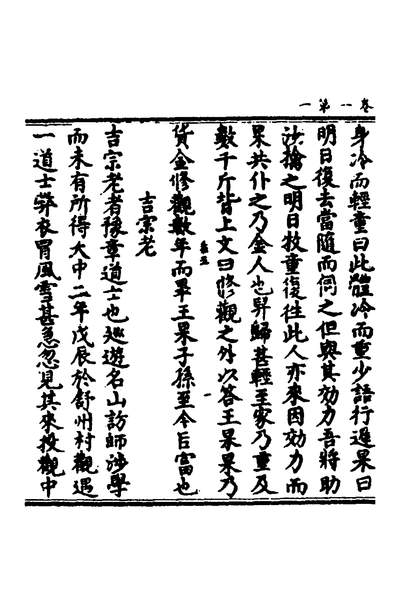 卷一第一
身冷而輕童曰此體冷而重少語行遲杲曰
明日復去當隨而伺之但與其効力吾將助
汝擒之明日投童復徃此人亦來因効力而
杲共仆之乃金人也舁歸甚輕至家乃重及
數千斤背上文曰修觀之外以答王杲杲乃
貨金修觀數年而畢王杲子孫至今巨富也
吉宗老
吉宗老者豫章道士也廵遊名山訪師涉學
而未有所得大中二年戊辰於舒州村觀遇
一道士弊衣冒風雪甚急忽見其來投觀中